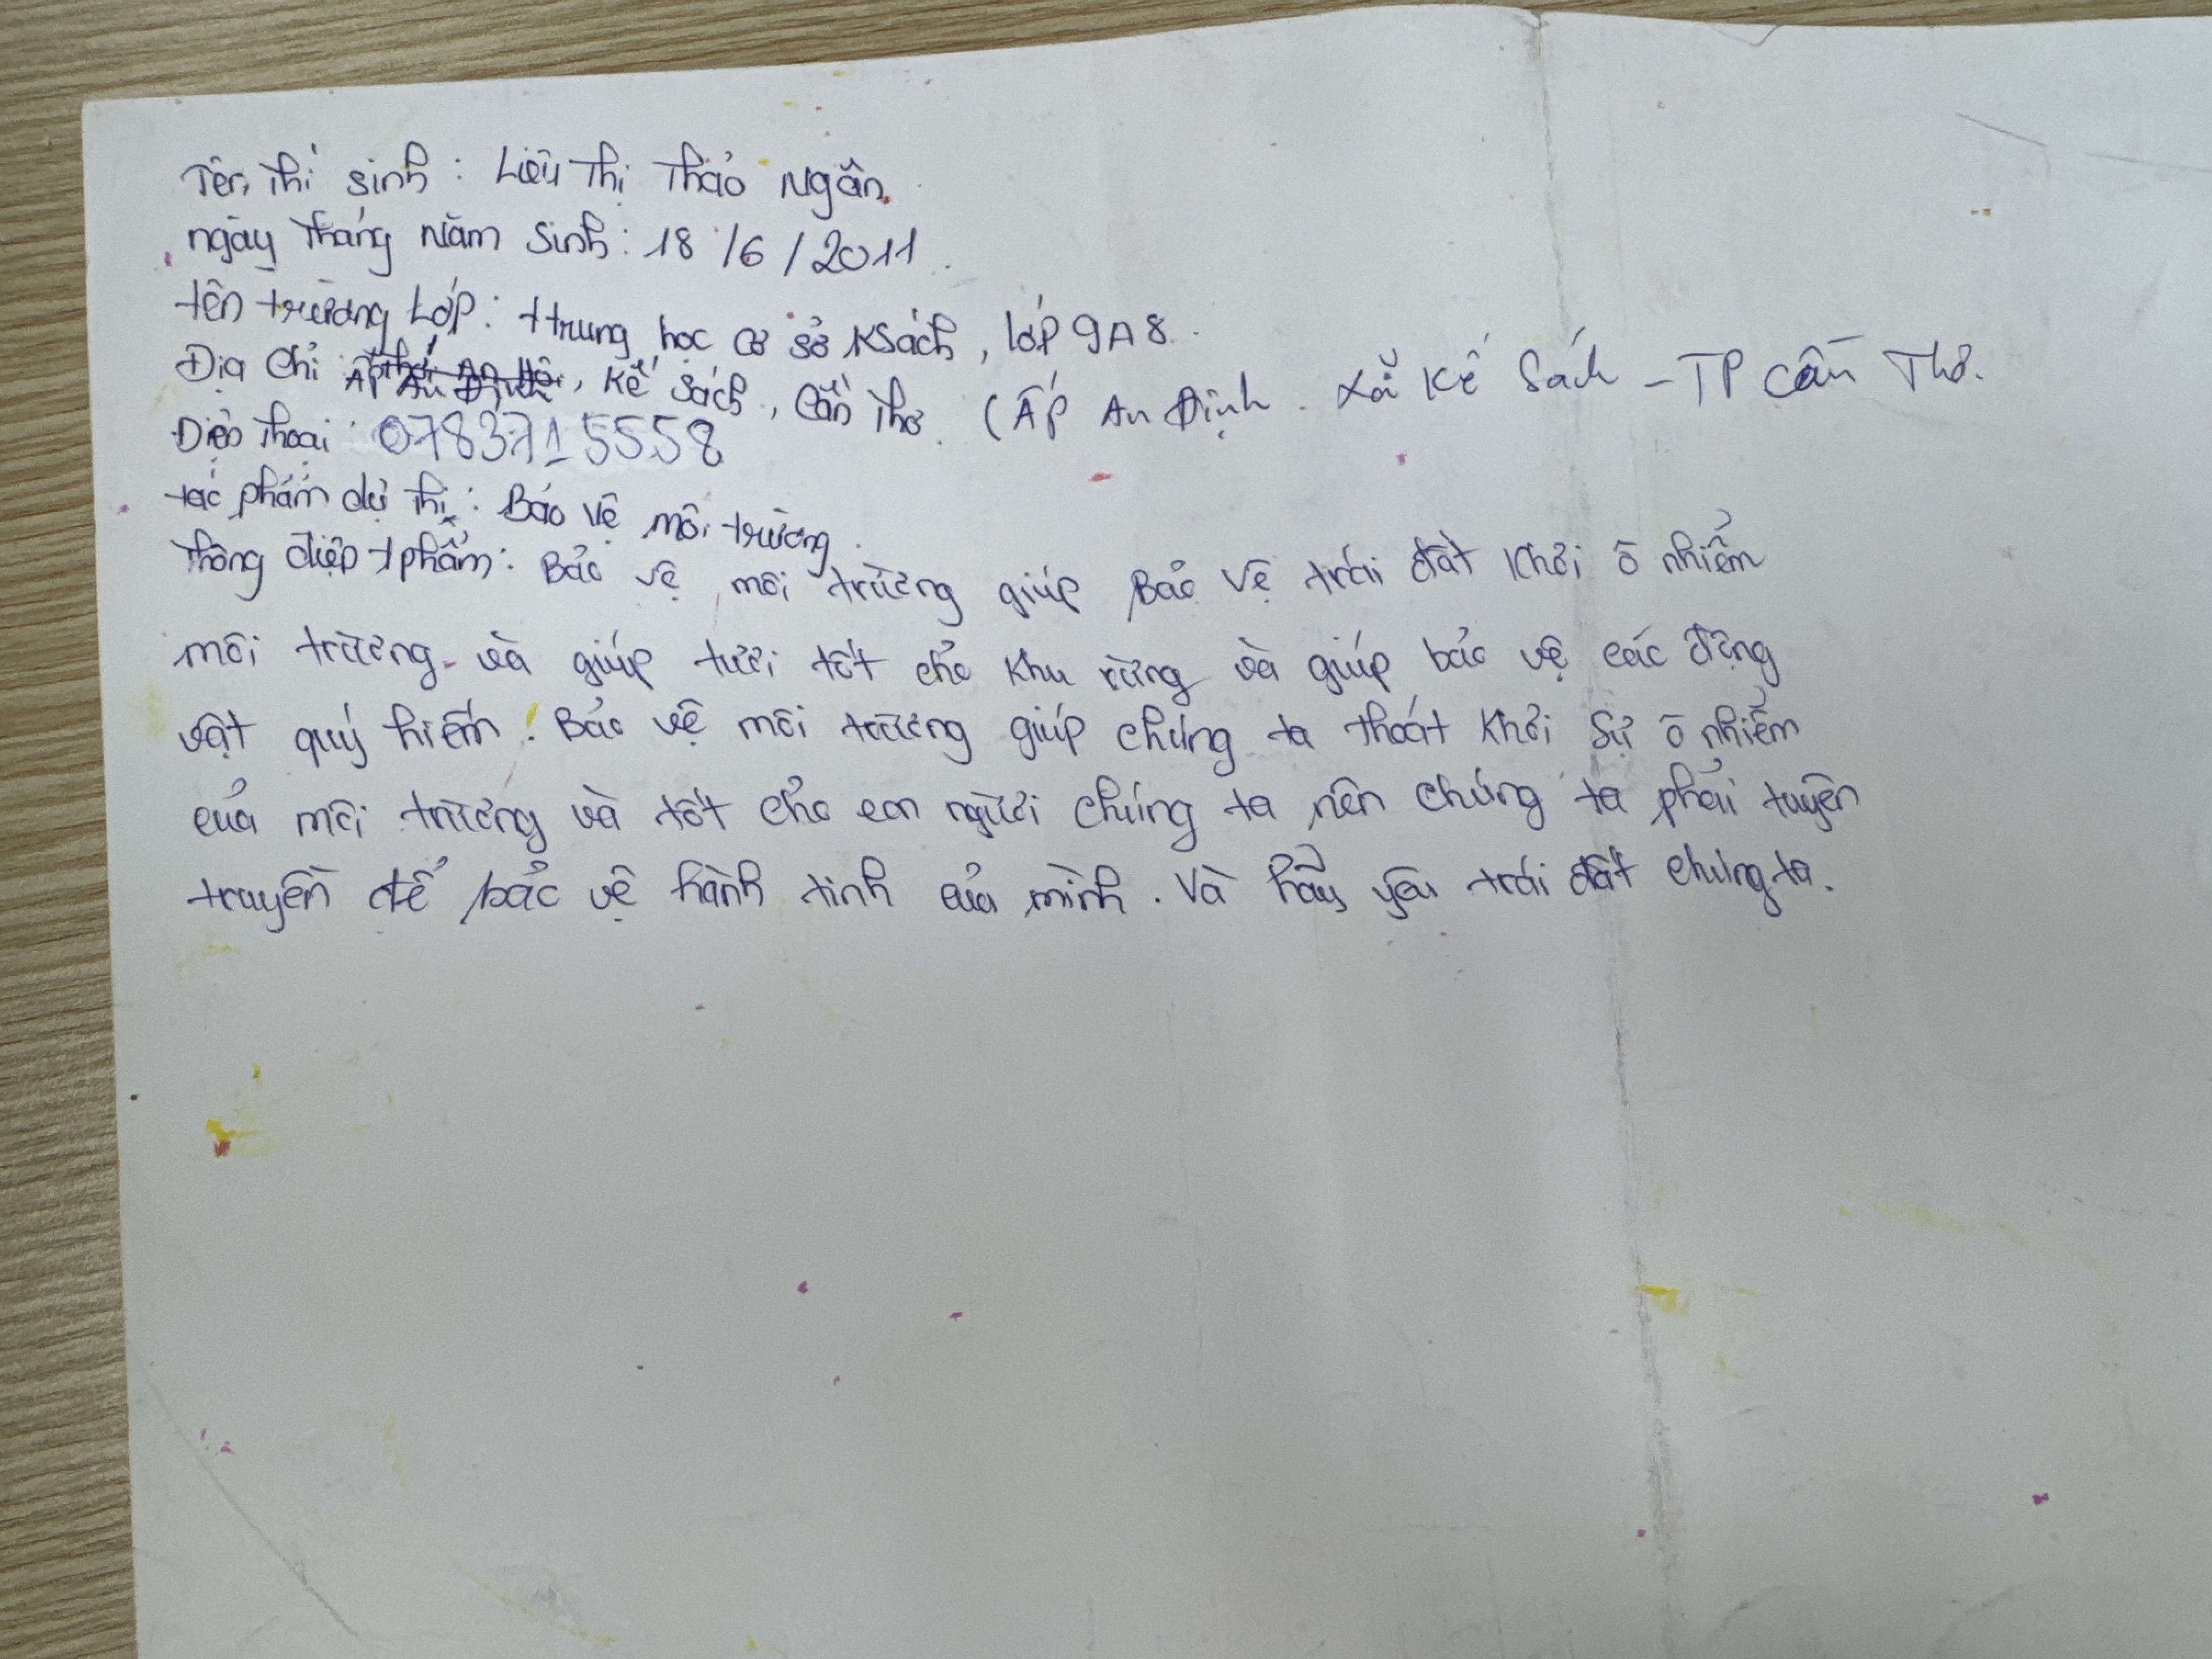 Tên thí sinh : Liêu Thị Thảo Ngân.
ngày tháng năm sinh : 18/6/2011.
tên trường Lớp : trung học cơ sở KSách, lớp 9A8.
Địa chỉ : Ấp , Kế Sách, Cần Thơ. (Ấp An Định. Xã Kế Sách - TP Cần Thơ.
Điện thoại : 0783715558
tác phẩm dự thi : Bảo vệ môi trường.
Thông điệp tphẩm : Bảo vệ môi trường giúp Bảo vệ trái đất khỏi ô nhiễm
môi trường và giúp tươi tốt cho khu rừng và giúp bảo vệ các động
vật quý hiếm ! Bảo vệ môi trường giúp chúng ta thoát khỏi sự ô nhiễm
của môi trường và tốt cho con người chúng ta nên chúng ta phải tuyên
truyền để bảo vệ hành tinh của mình. Và hãy yêu trái đất chúng ta.